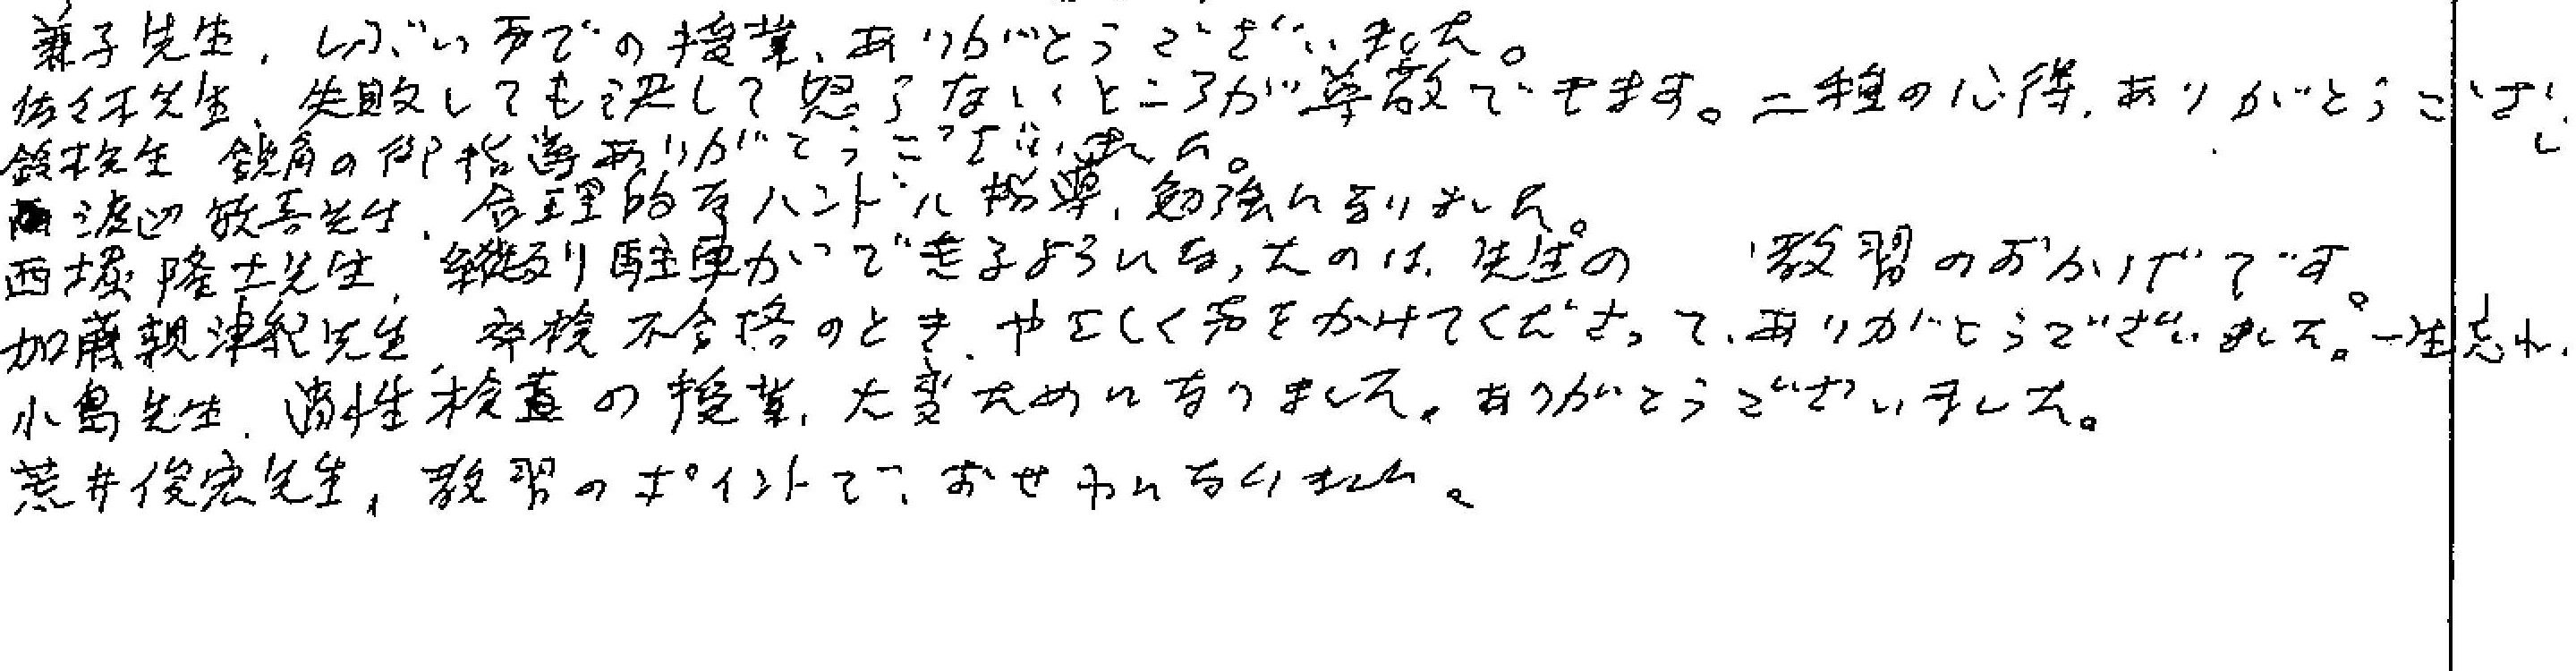 兼子先生、しぶい声での授業、ありがとうございました。
佐々木先生、失敗しても決して怒らないところが尊敬できます。二種の心得、ありがとうござい
鈴木先生 鋭角の御指導ありがとうございました。
渡辺敏喜先生、合理的なハンドル指導、勉強になりました。
西塚隆士先生、縦列駐車ができるようになったのは、先生の 教習のおかげです。
加藤親津紀先生、卒検不合格のとき、やさしく声をかけてくださって、ありがとうございました。一生忘れ
小島先生、適性検査の授業、大変ためになりました。ありがとうございました。
荒井俊宏先生、教習のポイントで、おせわになりました。